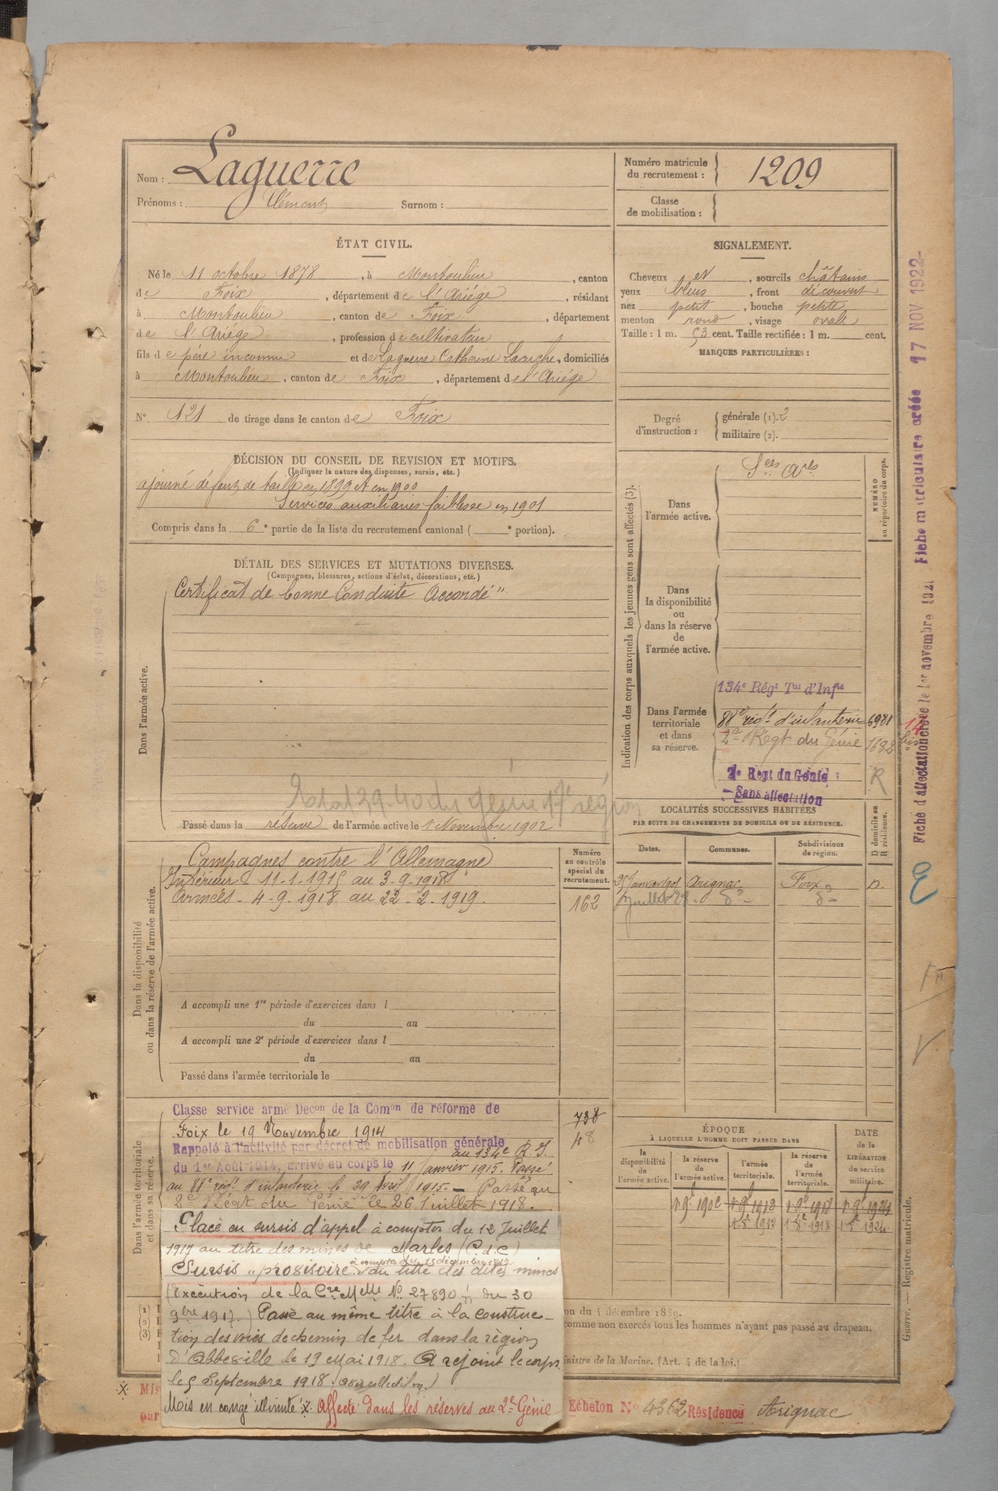 Nom : Laguerre
Prénoms : Clément Surnom :
Numéro matricule du recrutement : 1209
Classe de mobilisation :
ÉTAT CIVIL.
Né le 11 octobre 1878, à Montoulieu, canton
de Foix, département de l'Ariège, résidant
à Montoulieu, canton de Foix, département
de l'Ariège, profession de cultivateur
fils de père inconnu et de Laguerre Catherine, domiciliés
à Montoulieu, canton de Foix, département de l'Ariège
N° 121 de tirage dans le canton de Foix
SIGNALEMENT.
Cheveux et, sourcils châtains
yeux bleus, front découvert
nez petit, bouche petite
menton rond, visage ovale
Taille : 1 m. 53 cent. Taille rectifiée : 1 m. cent.
MARQUES PARTICULIÈRES :
Degré d'instruction : générale (1). 2
militaire (2).
DÉCISION DU CONSEIL DE REVISION ET MOTIFS.
(Indiquer la nature des dispenses, sursis, etc.)
ajourné défaut de taille en 1899 et en 1900
Services auxiliaires faiblesse en 1901
Compris dans la 6e partie de la liste du recrutement cantonal ( e portion).
DÉTAIL DES SERVICES ET MUTATIONS DIVERSES.
(Campagnes, blessures, actions d'éclat, décorations, etc.)
Dans l'armée active.
Certificat de bonne Conduite "Accordé"
Passé dans la réserve de l'armée active le 1 Novembre 1902
Indication des corps auxquels les jeunes gens sont affectés (3).
NUMÉRO au répertoire du corps.
Dans l'armée active.
Dans la disponibilité ou dans la réserve de l'armée active.
Dans l'armée territoriale et dans sa réserve.
134e Régt Tal d'Infie
88e régt d'infanterie 6981
2e Régt du Génie 1632
2e Regt du Génie
Sans affectation
R
LOCALITÉS SUCCESSIVES HABITÉES
PAR SUITE DE CHANGEMENTS DE DOMICILE OU DE RÉSIDENCE.
Dates. Communes. Subdivisions de région. D domicile ou R résidence.
Arignac Foix
Dans la disponibilité ou dans la réserve de l'armée active.
Numéro au contrôle spécial du recrutement.
Campagnes contre l'Allemagne
Intérieur 11.1.1915 au 3.9.1918
Armées - 4.9.1918 au 22.2.1919.
162
A accompli une 1re période d'exercices dans l
du au
A accompli une 2e période d'exercices dans l
du au
Passé dans l'armée territoriale le
Dans l'armée territoriale et dans sa réserve.
Classe service armé Decon de la Comon de réforme de
Foix le 19 Novembre 1914
Rappelé à l'activité par décret de mobilisation générale
du 1er Août 1914, arrivé au corps le 11 Janvier 1915. Passé
au 134e R.I.
au 88e régt d'infanterie le 29 1915. - Passé au
2e Régt du Génie le 26 juillet 1918.
738
48
Placé en sursis d'appel à compter du 12 Juillet
1917 au titre des mines de Marles (P.d.C)
Sursis provisoire au titre des dites mines
(exécution de la Cre Melle N° 27890 du 30
9bre 1917.) Passé au même titre à la construc-
tion des voies de chemin de fer dans la région
d'Abbeville le 19 mai 1918. A rejoint le corps
le 5 Septembre 1918
Mis en congé illimité Affecté dans les réserves au 2e Génie
Echelon N° 4362 Résidence Arignac
ÉPOQUE
À LAQUELLE L'HOMME DOIT PASSER DANS
la disponibilité de l'armée active. la réserve de l'armée active. l'armée territoriale. la réserve de l'armée territoriale.
DATE DE LA LIBÉRATION du service militaire.
1 9e 1902 1 9e 1912 1 9e 1918 1 9e 1924
on du 4 décembre 1889.
comme non exercés tous les hommes n'ayant pas passé au drapeau.
inistre de la Marine. (Art. 4 de la loi.)
Guerre. — Registre matricule.
Fiche d'affectation créée le 1er novembre 1921 Fiche matriculaire créée 17 NOV 1922